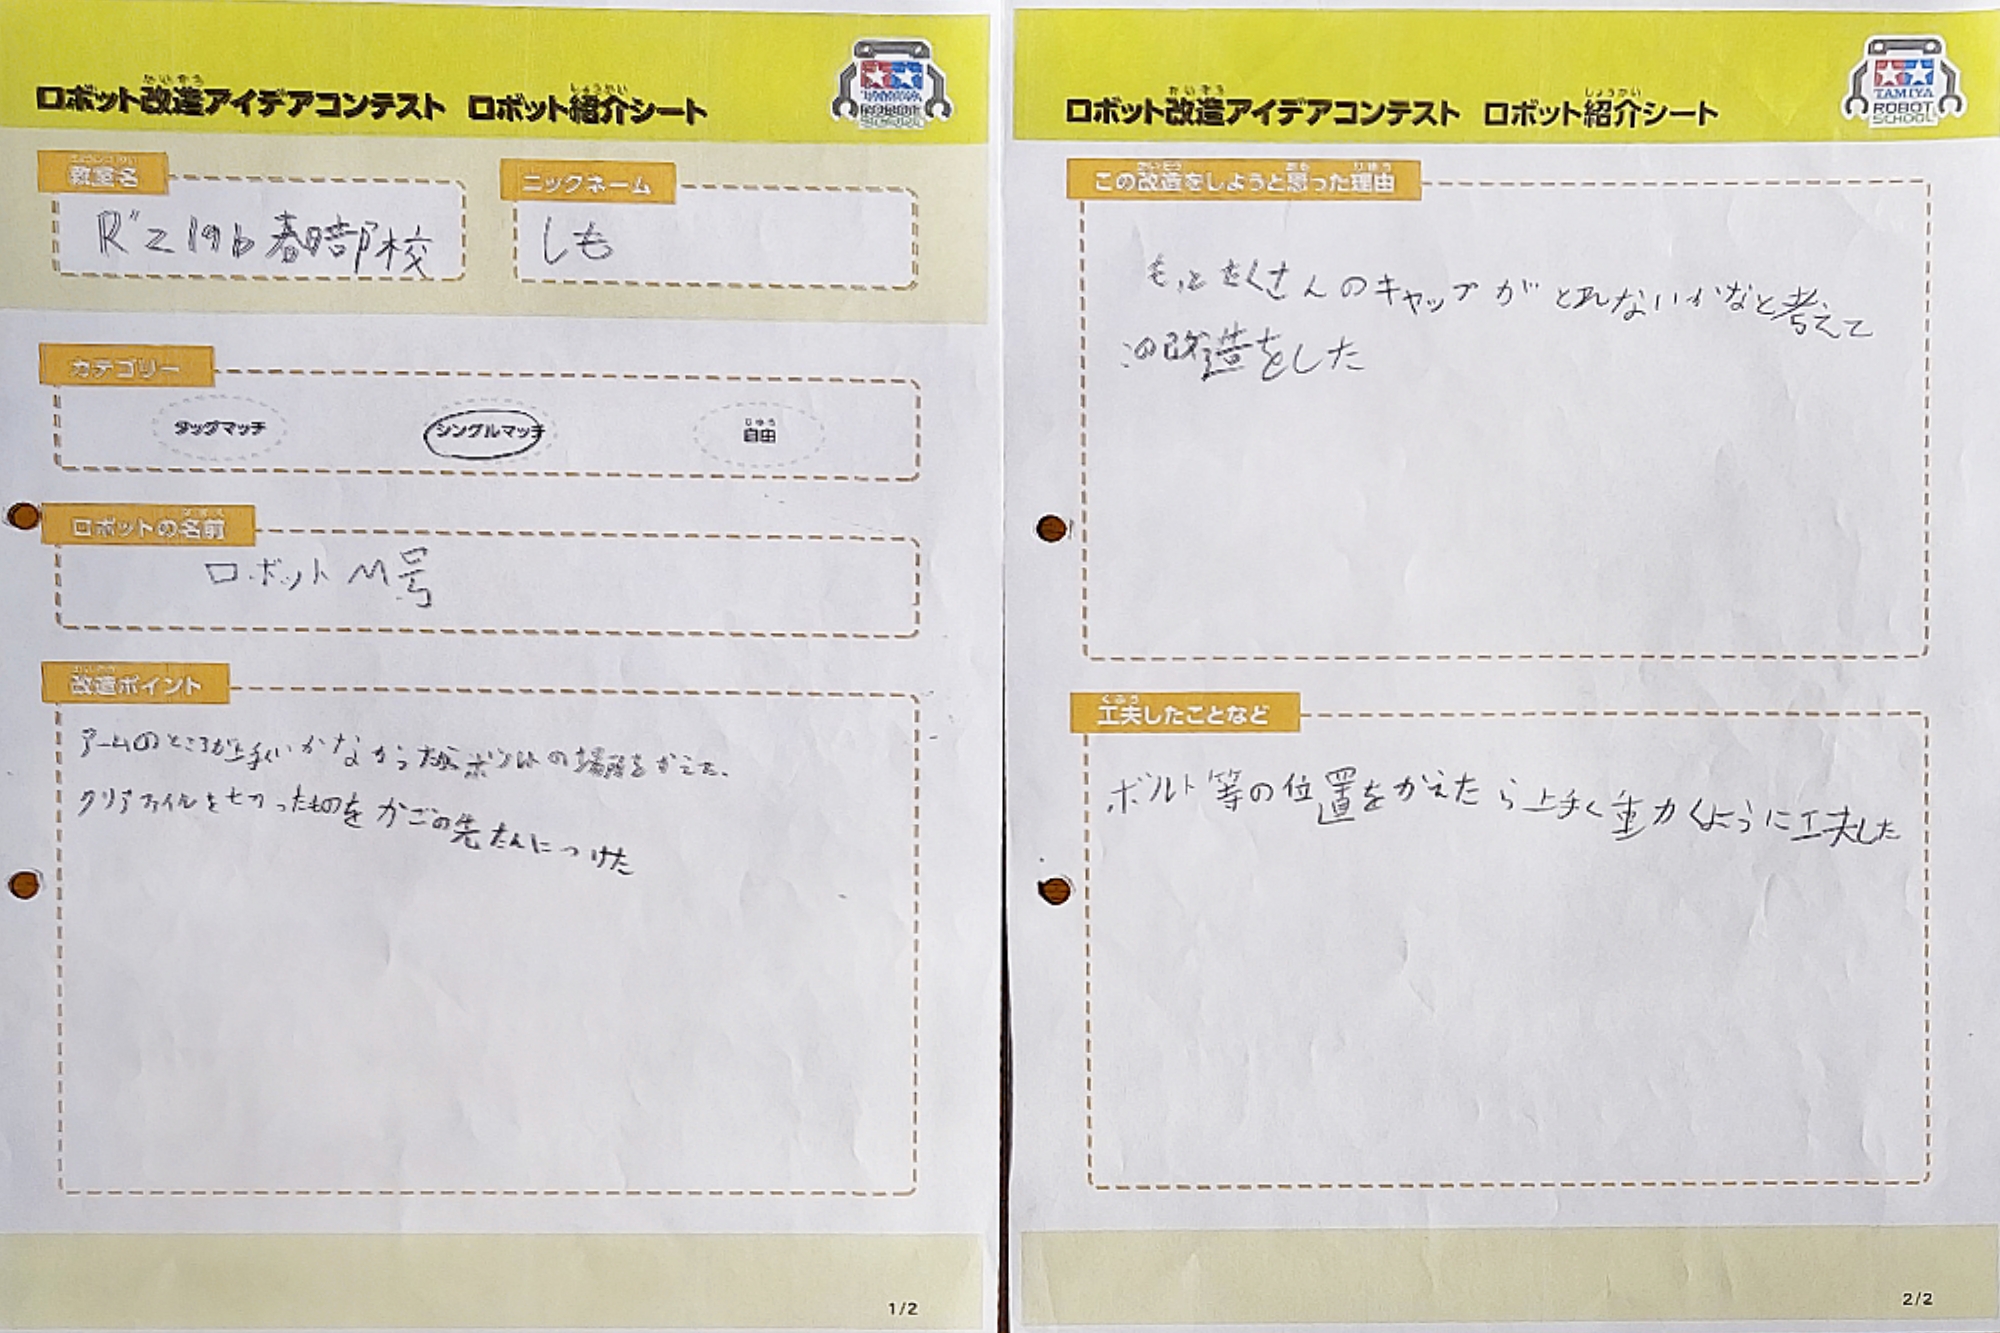 ロボット改造アイデアコンテスト ロボット紹介シート
TAMIYA
ROBOT
SCHOOL
教室名
R'z lab 春日部校
ニックネーム
しも
カテゴリー
タッグマッチ
シングルマッチ
じゆう
自由
ロボットの名前
ロボットM号
改造ポイント
アームのところが上手くいかなかったからボルトの場所をかえた。
クリアファイルを切ったものをかごの先たんにつけた
1/2
かいぞう
しょうかい
ロボット改造アイデアコンテスト ロボット紹介シート
TAMIYA
ROBOT
SCHOOL
かいぞう おも りゆう
この改造をしようと思った理由
もっとたくさんのキャップがとれないかなと考えて
この改造をした
くふう
工夫したことなど
ボルト等の位置をかえたら上手く動くように工夫した
2/2